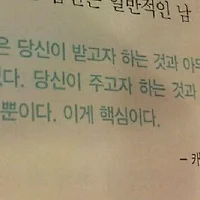 일반적인 남
은 당신이 받고자 하는 것과 아무
없다. 당신이 주고자 하는 것과
뿐이다. 이게 핵심이다.
– 캐